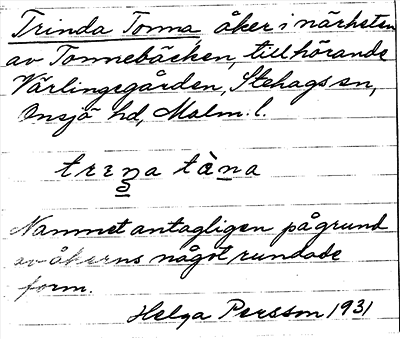 Trinda Tonna åker i närheten
av Tonnebäcken, tillhörande
Värlingegården, Stehags sn,
Onsjö hd, Malm. l.
trɛn̲a tàn̲a
Namnet antagligen på grund
av åkerns något rundade
form.
Helga Persson 1931